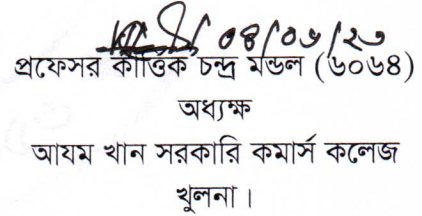 ০৪/০৬/২৩
প্রফেসর কার্ত্তিক চন্দ্র মন্ডল (৬০৬৪)
অধ্যক্ষ
আযম খান সরকারি কমার্স কলেজ
খুলনা।